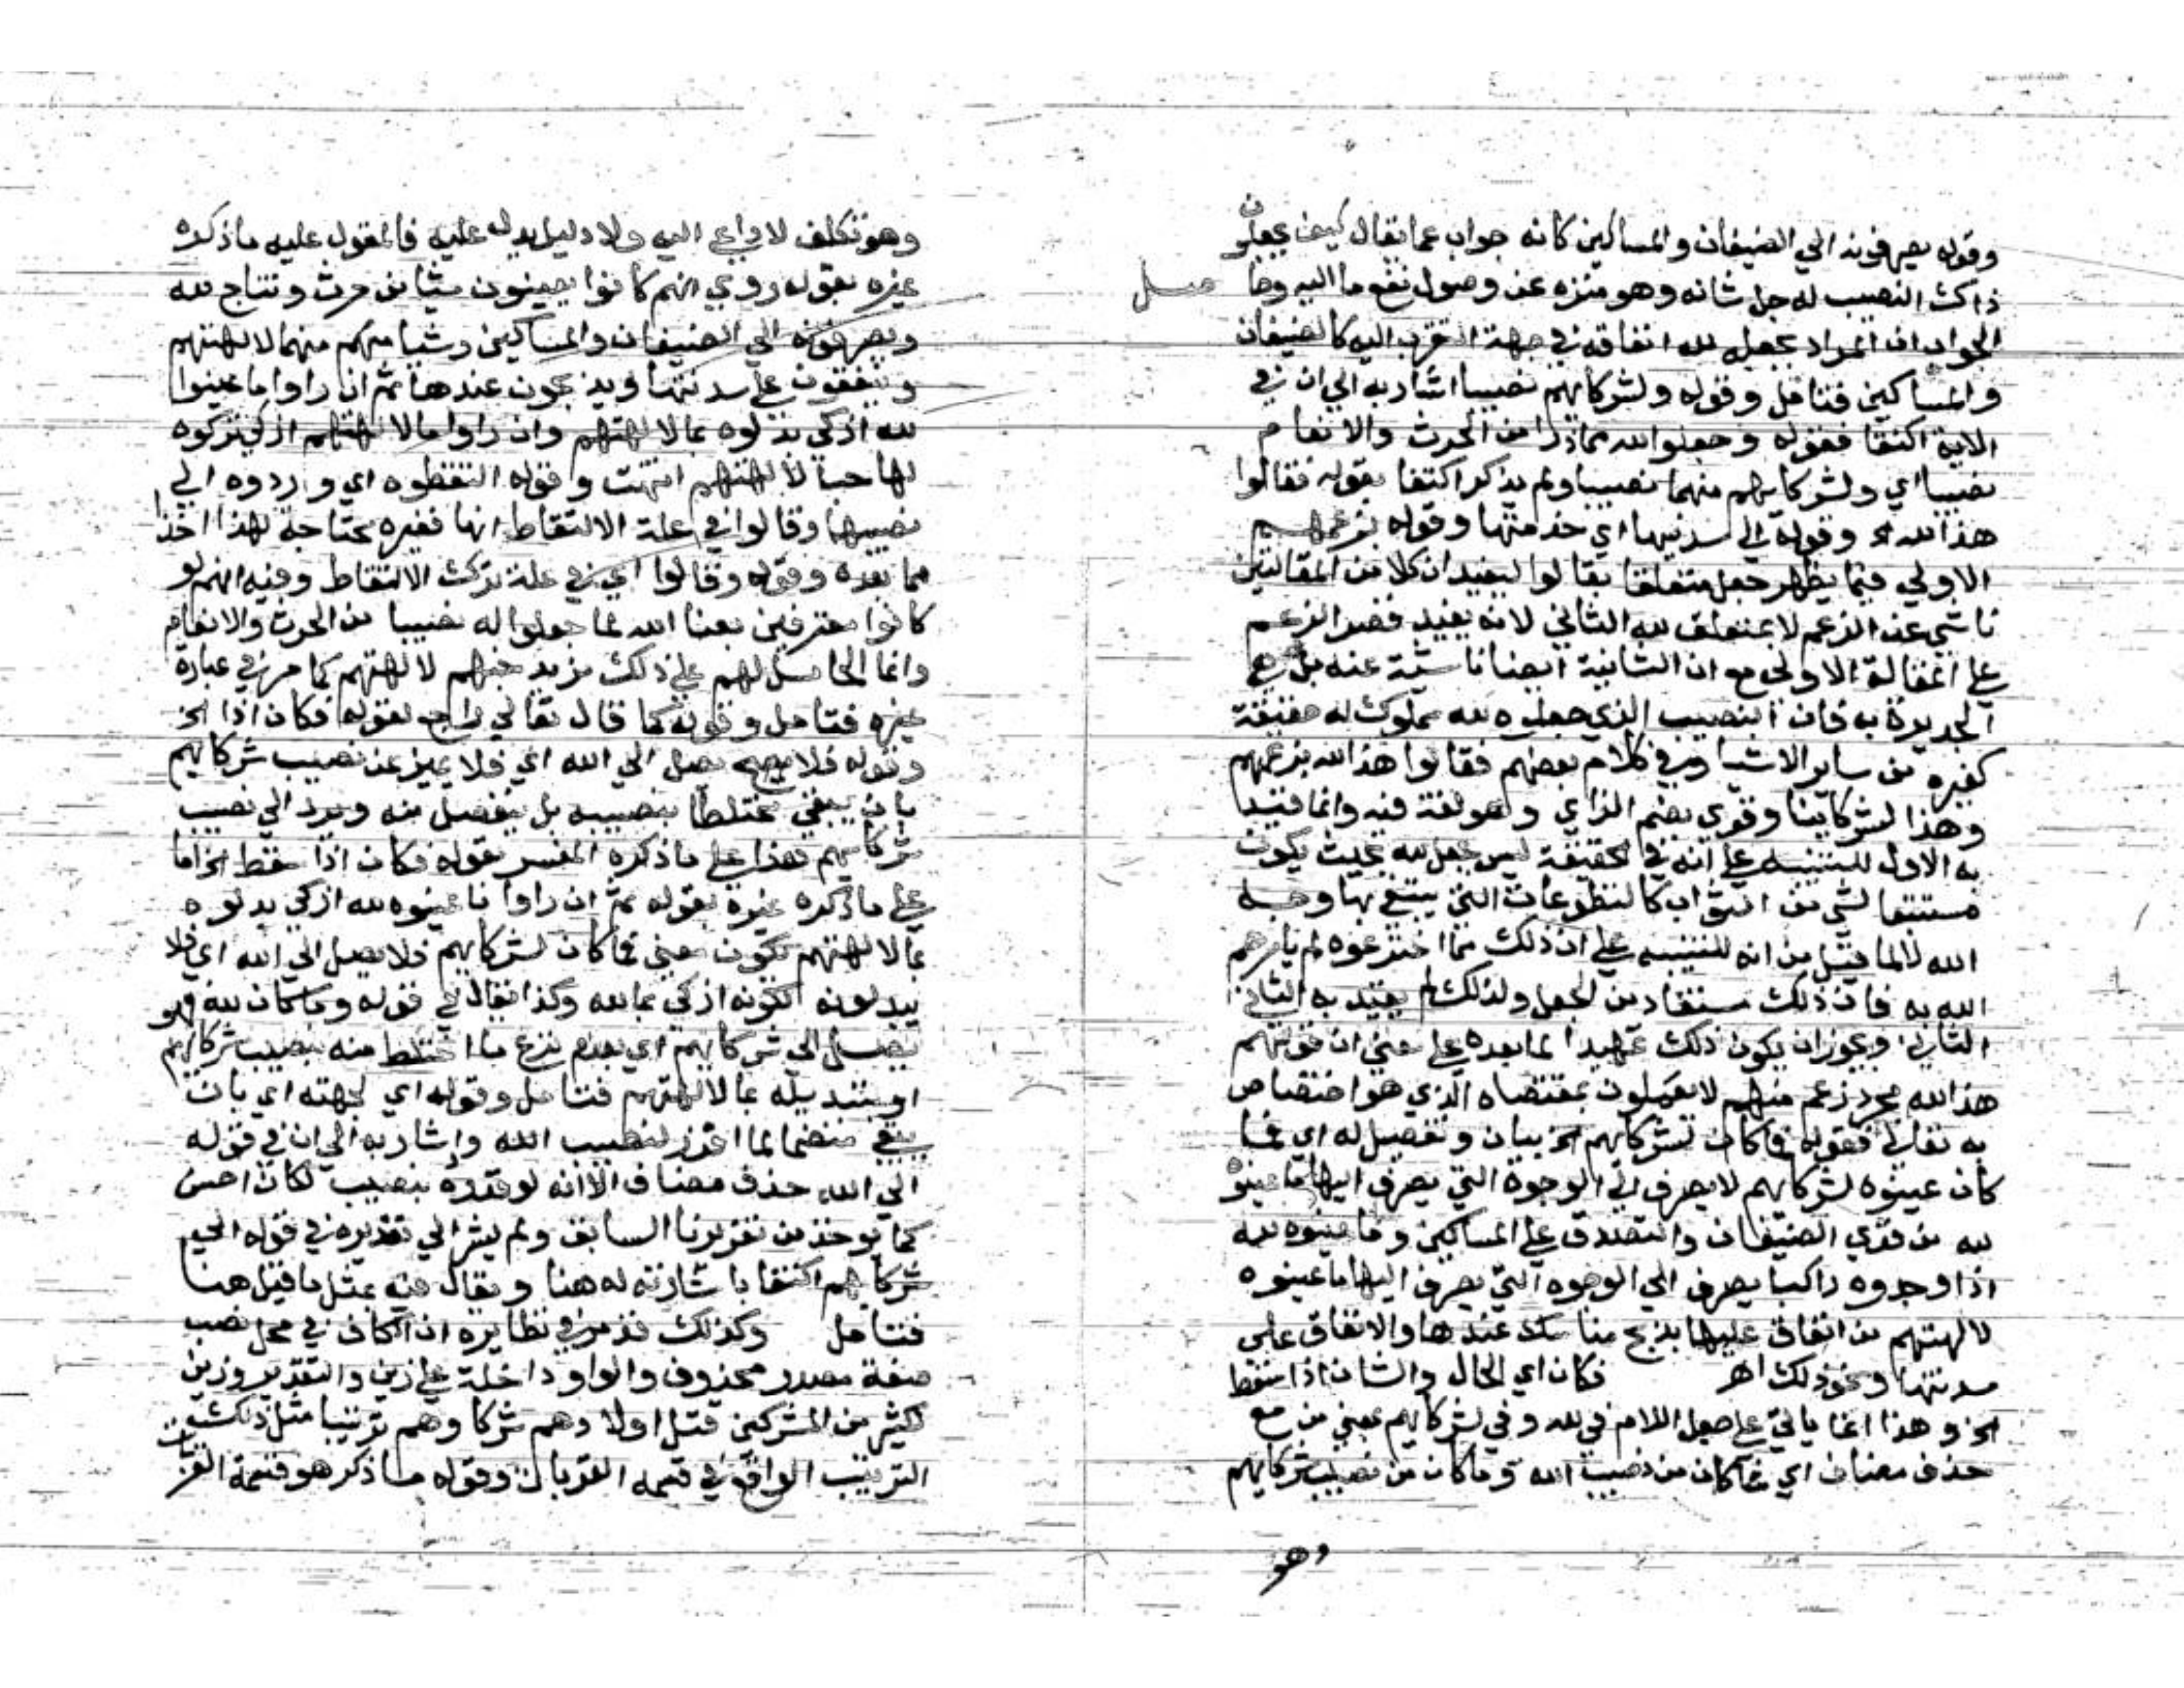 وقوله يصرفونه الي الضيفان والمساكين كانه جواب عما يقال كيف يجعلون
ذاك النصيب له جل شانه وهو منزه عن وصول نفع ما اليه وحاصل
الجواب ان المراد بجعله لله انفاقه في جهة التقرب اليه كالضيفان
والمساكين فتامل وقوله ولشركايهم نصيبا اشار به الي ان في
الاية اكتفا فقوله وجعلوا لله مما ذرا من الحرث والانعام
نصيبا اي ولشركايهم منهما نصيبا ولم يذكر اكتفا بقوله فقالوا
هذا لله الخ وقوله الي سدنتها اي خدمتها وقوله بزعمهم
الاولي فيما يظهر جعل متعلقا بقالوا ليفيد ان كلا من المقالتين
ناشي عن الزعم لا بمتعلق لله الثاني لانه يفيد قصر الزعم
علي المقالة الاولي مع ان الثانية ايضا ناشية عنه بل هي
الجديرة به فان النصيب الذي جعلوه لله مملوك له حقيقة
كغيره من ساير الاشيا وفي كلام بعضهم فقالوا هذا لله بزعمهم
وهذا لشركاينا وقري بضم الزاي وهو لغة فيه وانما قيد
به الاول للتنبيه علي انه في الحقيقة ليس بجعل لله بحيث يكون
مستتبعا لشي من الثواب كالتطوعات التي يبتغي بها وجه
الله لا لما قيل من انه للتنبيه علي ان ذلك مما اخترعوه لم يامرهم
الله به فان ذلك مستفاد من الجعل ولذلك لم يقيد به الثاني
الثاني ويجوز ان يكون ذلك تمهيدا لما بعده علي معني ان قولهم
هذا لله مجرد زعم منهم لا يعملون بمقتضاه الذي هو اختصاص
به تعالي فقوله فما كان لشركايهم الخ بيان وتفصيل له اي فما
كان عينوه لشركايهم لا يصرف الي الوجوه التي يصرف اليها ما عينوه
لله من قري الضيفان والتصدق علي المساكين وما عينوه لله
اذا وجدوه زاكيا يصرف الي الوجوه التي يصرف اليها ما عينوه
لالهتهم من انفاق عليها بذبح مناسك عندها والانفاق علي
سدنتها ونحو ذلك اهـ فكان اي الحال والشان اذا سقط
الخ وهذا انما ياتي علي جعل اللام في لله وفي لشركايهم بمعني من مع
حذف مضاف اي فما كان من نصيب الله وما كان من نصيب شركايهم
وهو
وهو تكلف لا داعي اليه ولا دليل يدل عليه فالمعول عليه ما ذكره
غيره بقوله روي انهم كانوا يعينون شيا من حرث ونتاج لله
ويصرفونه الي الضيفان والمساكين وشيا منهما لالهتهم
وينفقون علي سدنتها ويذبحون عندها ثم ان راوا ما عينوا
لله ازكي بدلوه بما لالهتهم وان راوا ما لالهتهم ازكي تركوه
لها حبا لالهتهم انتهت وقوله التقطوه اي وردوه الي
نصيبها وقالوا في علة الالتقاط انها فقيره محتاجة لهذا اخذا
مما بعده وقوله وقالوا اي في علة ترك الالتقاط وفيه انهم لو
كانوا معترفين بغنا الله لما جعلوا له نصيبا من الحرث والانعام
وانما الحامل لهم علي ذلك مزيد حبهم لالهتهم كما مر في عبارة
غيره فتامل وقوله كما قال تعالي راجع لقوله فكان اذا الخ
وقوله فلا يصل الي الله اي فلا يميز عن نصيب شركايهم
بان يبقي مختلطا بنصيبه بل يفصل منه ويرد الي نصيب
شركايهم هذا علي ما ذكره المفسر بقوله فكان اذا سقط الخ اما
علي ما ذكره غيره بقوله ثم ان راوا ما عينوه لله ازكي بدلوه
بما لالهتهم فيكون معني فما كان لشركايهم فلا يصل الي الله اي فلا
يبدلونه لكونه ازكي بما لله وكذا يقال في قوله وما كان لله فهو
يصل الي شركايهم اي بعدم نزع ما اختلط منه بنصيب شركايهم
او بتبديله بما لالهتهم فتامل وقوله اي لجهته اي بان
يبقي منضما لما افرز لنصيب الله واشار به الي ان في قوله
الي الله حذف مضاف الا انه لو قدره بنصيب لكان احسن
كما يوخذ من تقريرنا السابق ولم يشر الي تقديره في قوله الي
شركايهم اكتفا باشارته له هنا ويقال فيه بمثل ما قيل هنا
فتامل وكذلك قد مر في نظايره ان الكاف في محل نصب
صفة مصدر محذوف والواو داخلة علي زين والتقدير وزين
لكثير من المشركين قتل اولادهم شركاوهم تزيينا مثل ذلك
التزيين الواقع في قسمة القربان وقوله ما ذكر هو قسمة القربان